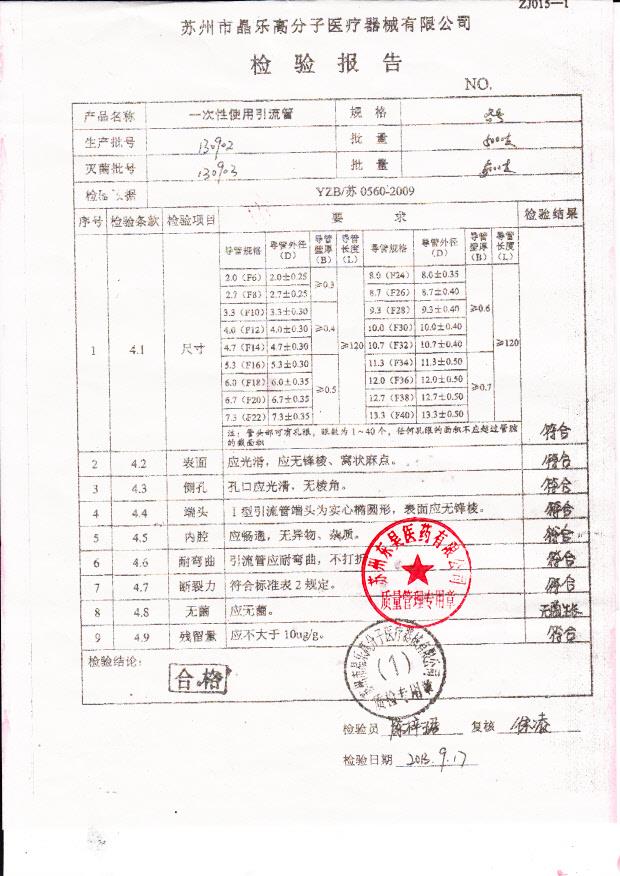 ZJ015—1
苏州市晶乐高分子医疗器械有限公司
检验报告
NO.
产品名称 一次性使用引流管 规格
生产批号 130902 批量 500支
灭菌批号 130903 批量 500支
检验依据 YZB/苏 0560-2009
序号 检验条款 检验项目 要求 检验结果
导管规格 导管外径(D) 导管壁厚(B) 导管长度(L) 导管规格 导管外径(D) 导管壁厚(B) 导管长度(L)
2.0(F6) 2.0±0.25 ≥0.3 8.0(F24) 8.0±0.35
2.7(F8) 2.7±0.25 8.7(F26) 8.7±0.40
3.3(F10) 3.3±0.30 9.3(F28) 9.3±0.40 ≥0.6
4.0(F12) 4.0±0.30 ≥0.4 10.0(F30) 10.0±0.40
1 4.1 尺寸 4.7(F14) 4.7±0.30 ≥120 10.7(F32) 10.7±0.40 ≥120
5.3(F16) 5.3±0.30 11.3(F34) 11.3±0.50
6.0(F18) 6.0±0.35 ≥0.5 12.0(F36) 12.0±0.50 ≥0.7
6.7(F20) 6.7±0.35 12.7(F38) 12.7±0.50
7.3(F22) 7.3±0.35 13.3(F40) 13.3±0.50
注:管头部可有孔眼,眼数为1~40个,任何孔眼的面积不应超过管腔 符合
的截面积
2 4.2 表面 应光滑,应无锋棱、窝状麻点。 符合
3 4.3 侧孔 孔口应光滑,无棱角。 符合
4 4.4 端头 1型引流管端头为实心椭圆形,表面应无锋棱。 符合
5 4.5 内腔 应畅通,无异物、杂质。 符合
6 4.6 耐弯曲 引流管应耐弯曲,不打折 符合
7 4.7 断裂力 符合标准表2规定。 符合
8 4.8 无菌 应无菌。 无菌生长
9 4.9 残留量 应不大于10ug/g。 符合
苏州东星医药有限公司
质量管理专用章
检验结论:
合格
苏州市晶乐高分子医疗器械有限公司
(1)
质检专用章
检验员 复核 徐凌
检验日期 2013.9.17